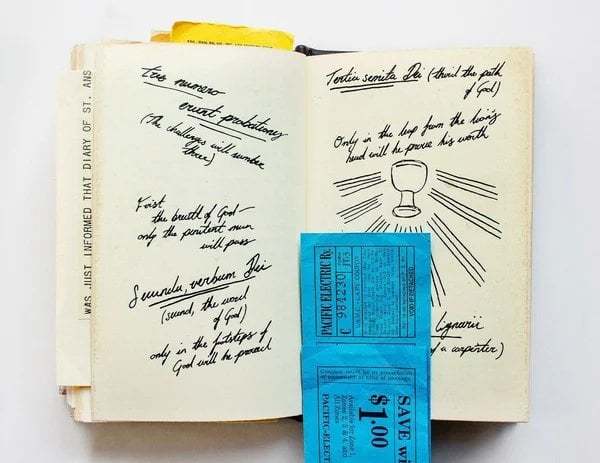 WAS JUST INFORMED THAT DIARY OF ST. ANS
tres numero
erunt probationes
(The challenges will number
three)
First
the breath of God—
only the penitent man
will pass
Secunda, verbum Dei
(second, the word
of God)
only in the footsteps of
God will he proceed
Tertia semita Dei (third the path
of God)
Only in the leap from the lion's
head will he prove his worth
Lignarii
of a carpenter)
PACIFIC ELECTRIC Ry.
C 984230
VOID IF DETACHED
SAVE wi
$1.00
Available for Zone 1,
Zones 2, 3 & 4, and
All Zones
PACIFIC-ELECT